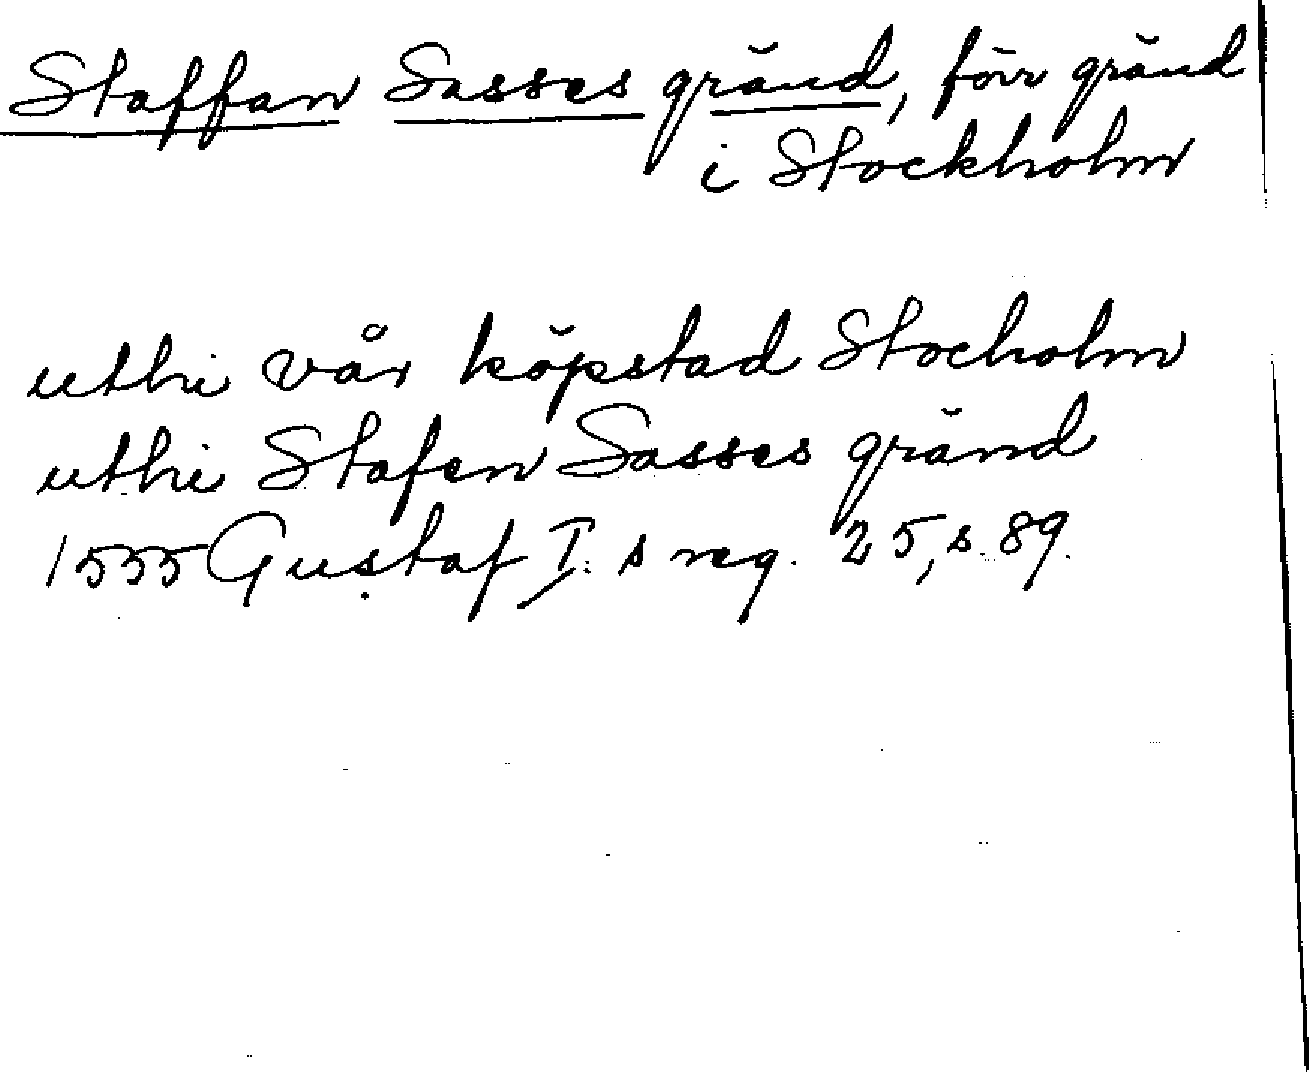 Staffan Sasses gränd, förr gränd
i Stockholm
uthi vår köpstad Stocholm
uthi Stafen Sasses gränd
1555 Gustaf I:s reg. 25, s. 89.